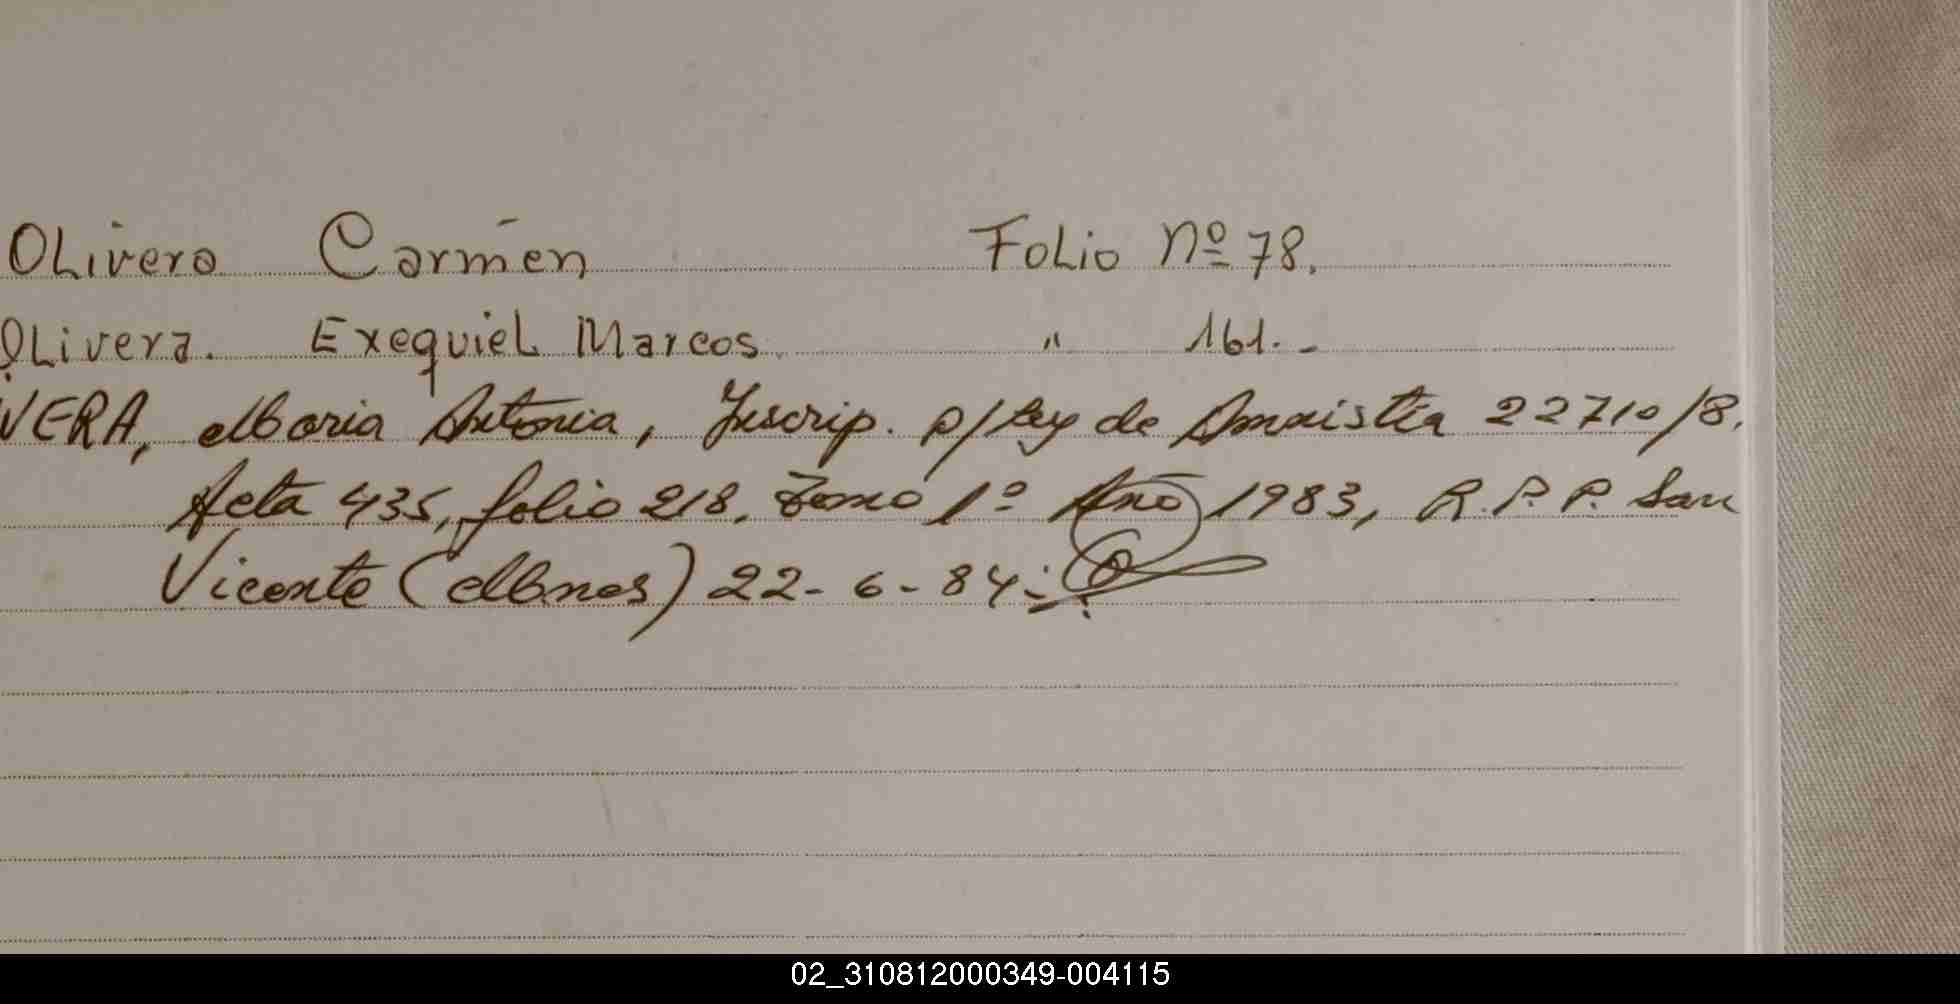 Olivero Carmen Folio Nº 78.
Olivera. Exequiel Marcos. " 161.-
VERA, Maria Antonia, Inscrip. p/ Ley de Amnistía 22710/8.
Acta 435, folio 218, tomo 1º Año 1983, R.P.P. San
Vicente (Mnes) 22-6-84.-
02_310812000349-004115